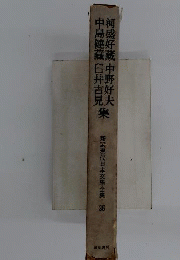 河盛好蔵 中野好夫
中島健蔵 臼井吉見 集
現代日本文學全集